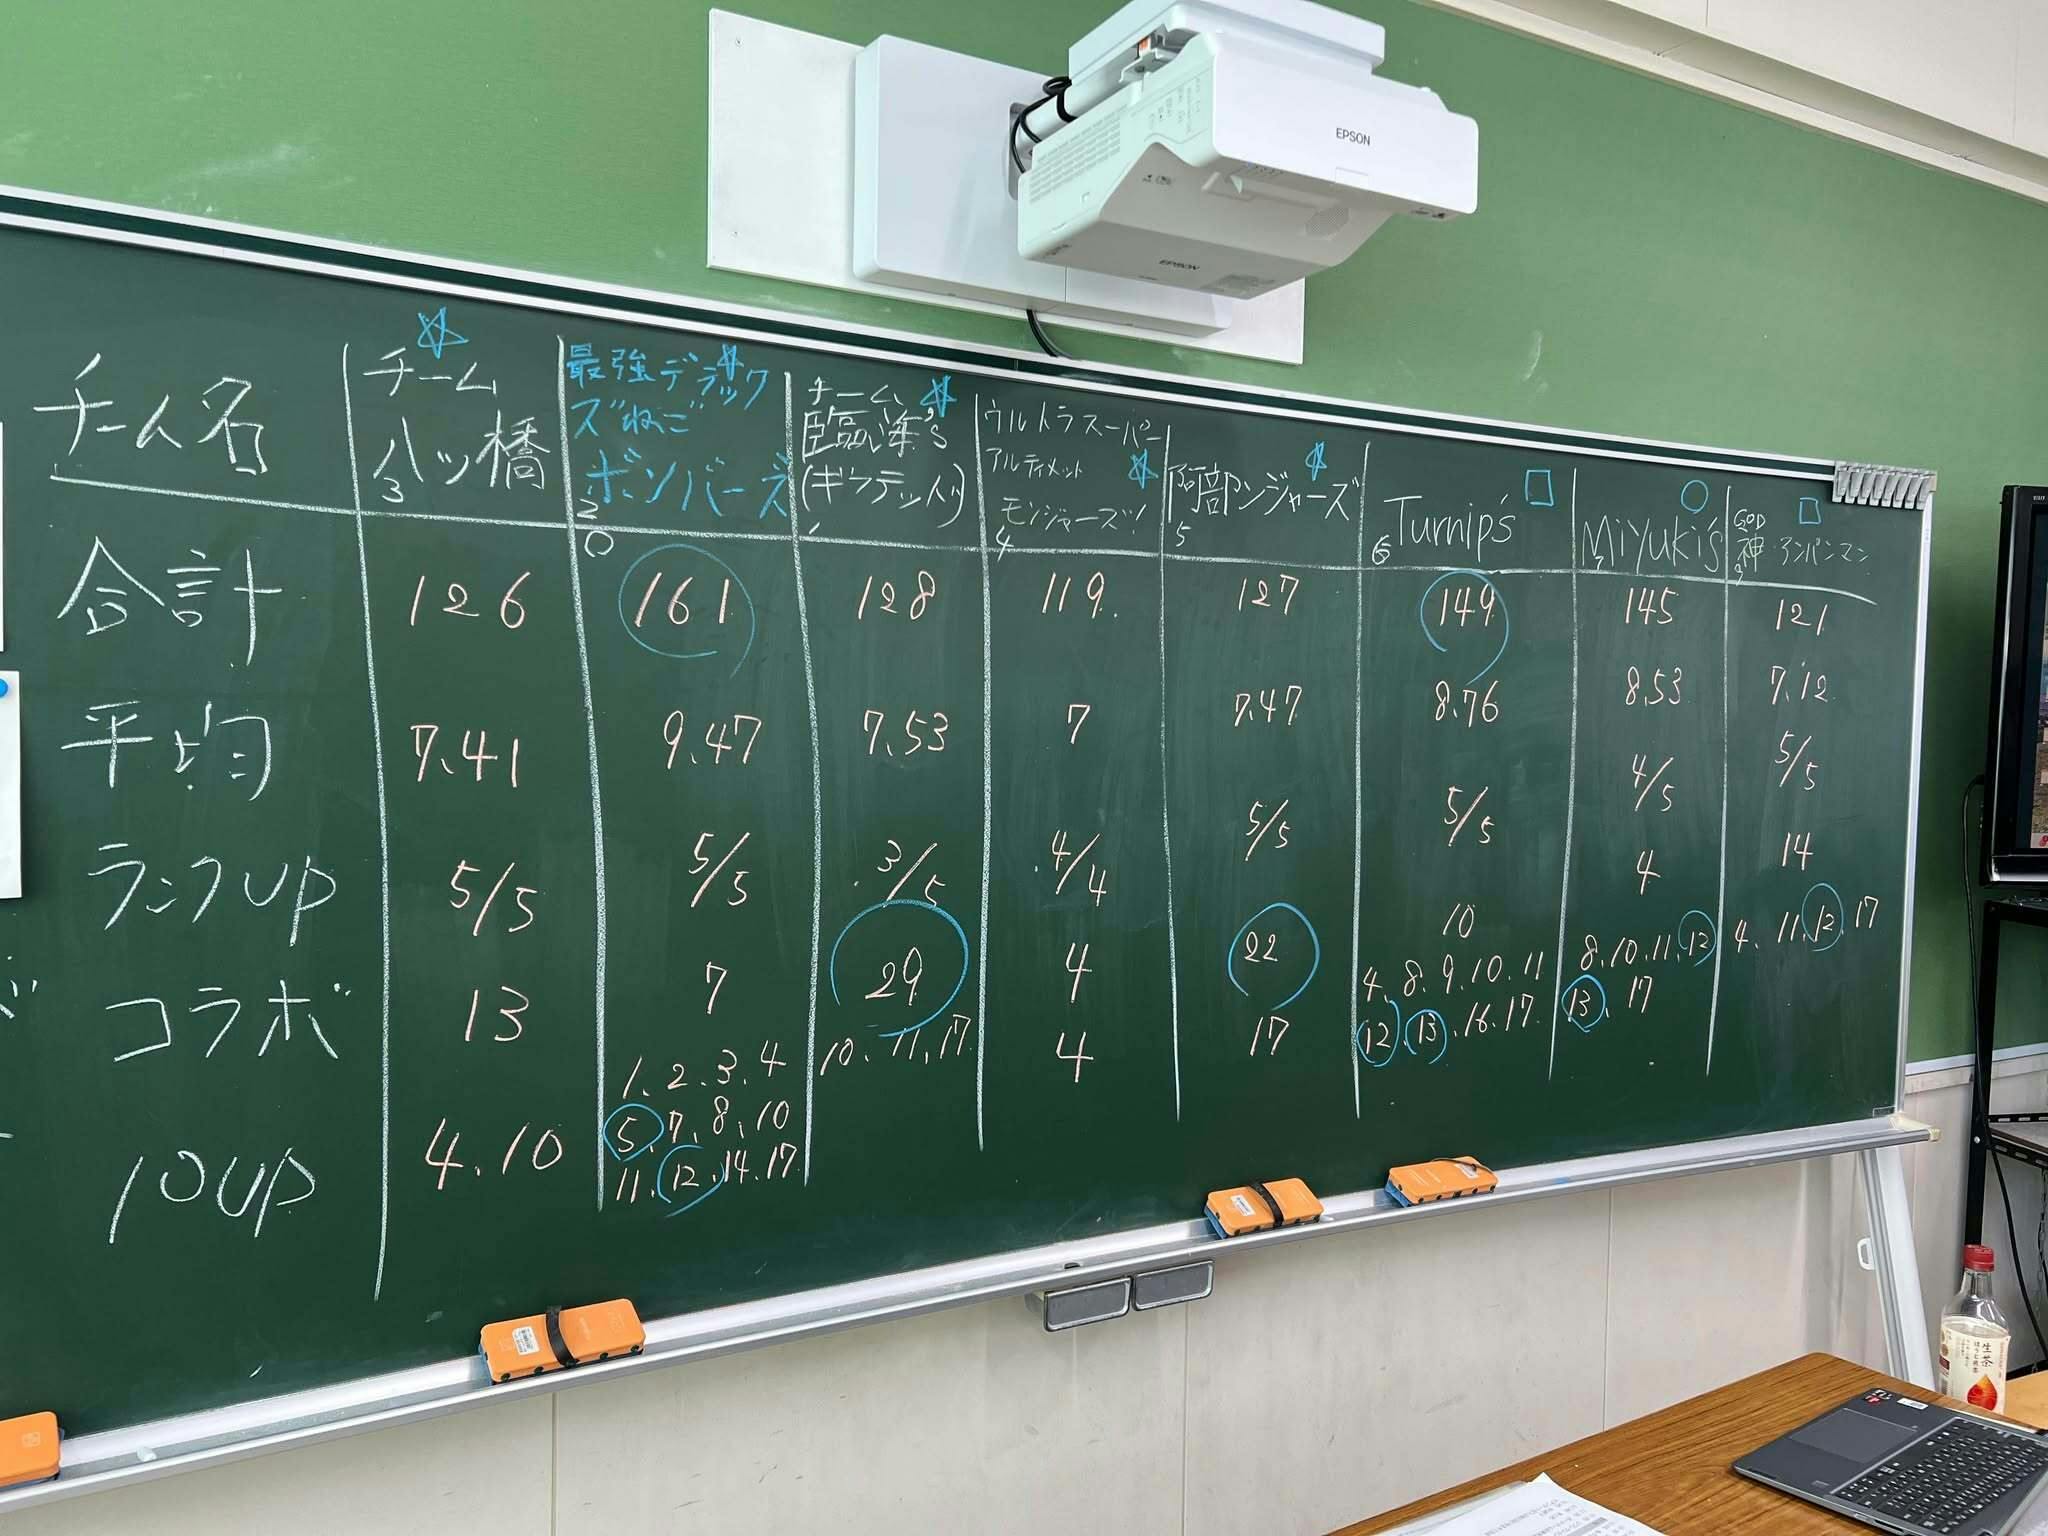 EPSON
EPSON
チーム名
チーム
八ッ橋
3
最強デラックス
ズねご
ボンバーズ
2
0
チーム
臨海's
ウルトラスーパー
アルティメット
モンジャーズ!
4
阿部ンジャーズ
5
Turnip's
6
MiYuki's
GOD
神・アンパンマン
合計
126
161
128
119
127
149
145
121
平均
7.41
9.47
7.53
7
7.47
8.76
8.53
7.12
ランクUP
5/5
5/5
3/5
4/4
5/5
5/5
4/5
5/5
コラボ
13
7
29
4
22
10
4
14
10UP
4.10
1.2.3.4
5.7.8.10
11.12.14.17
10.11.17
4
17
4.8.9.10.11
12.13.16.17
8.10.11.12
13.17
4.11.12.17
生茶